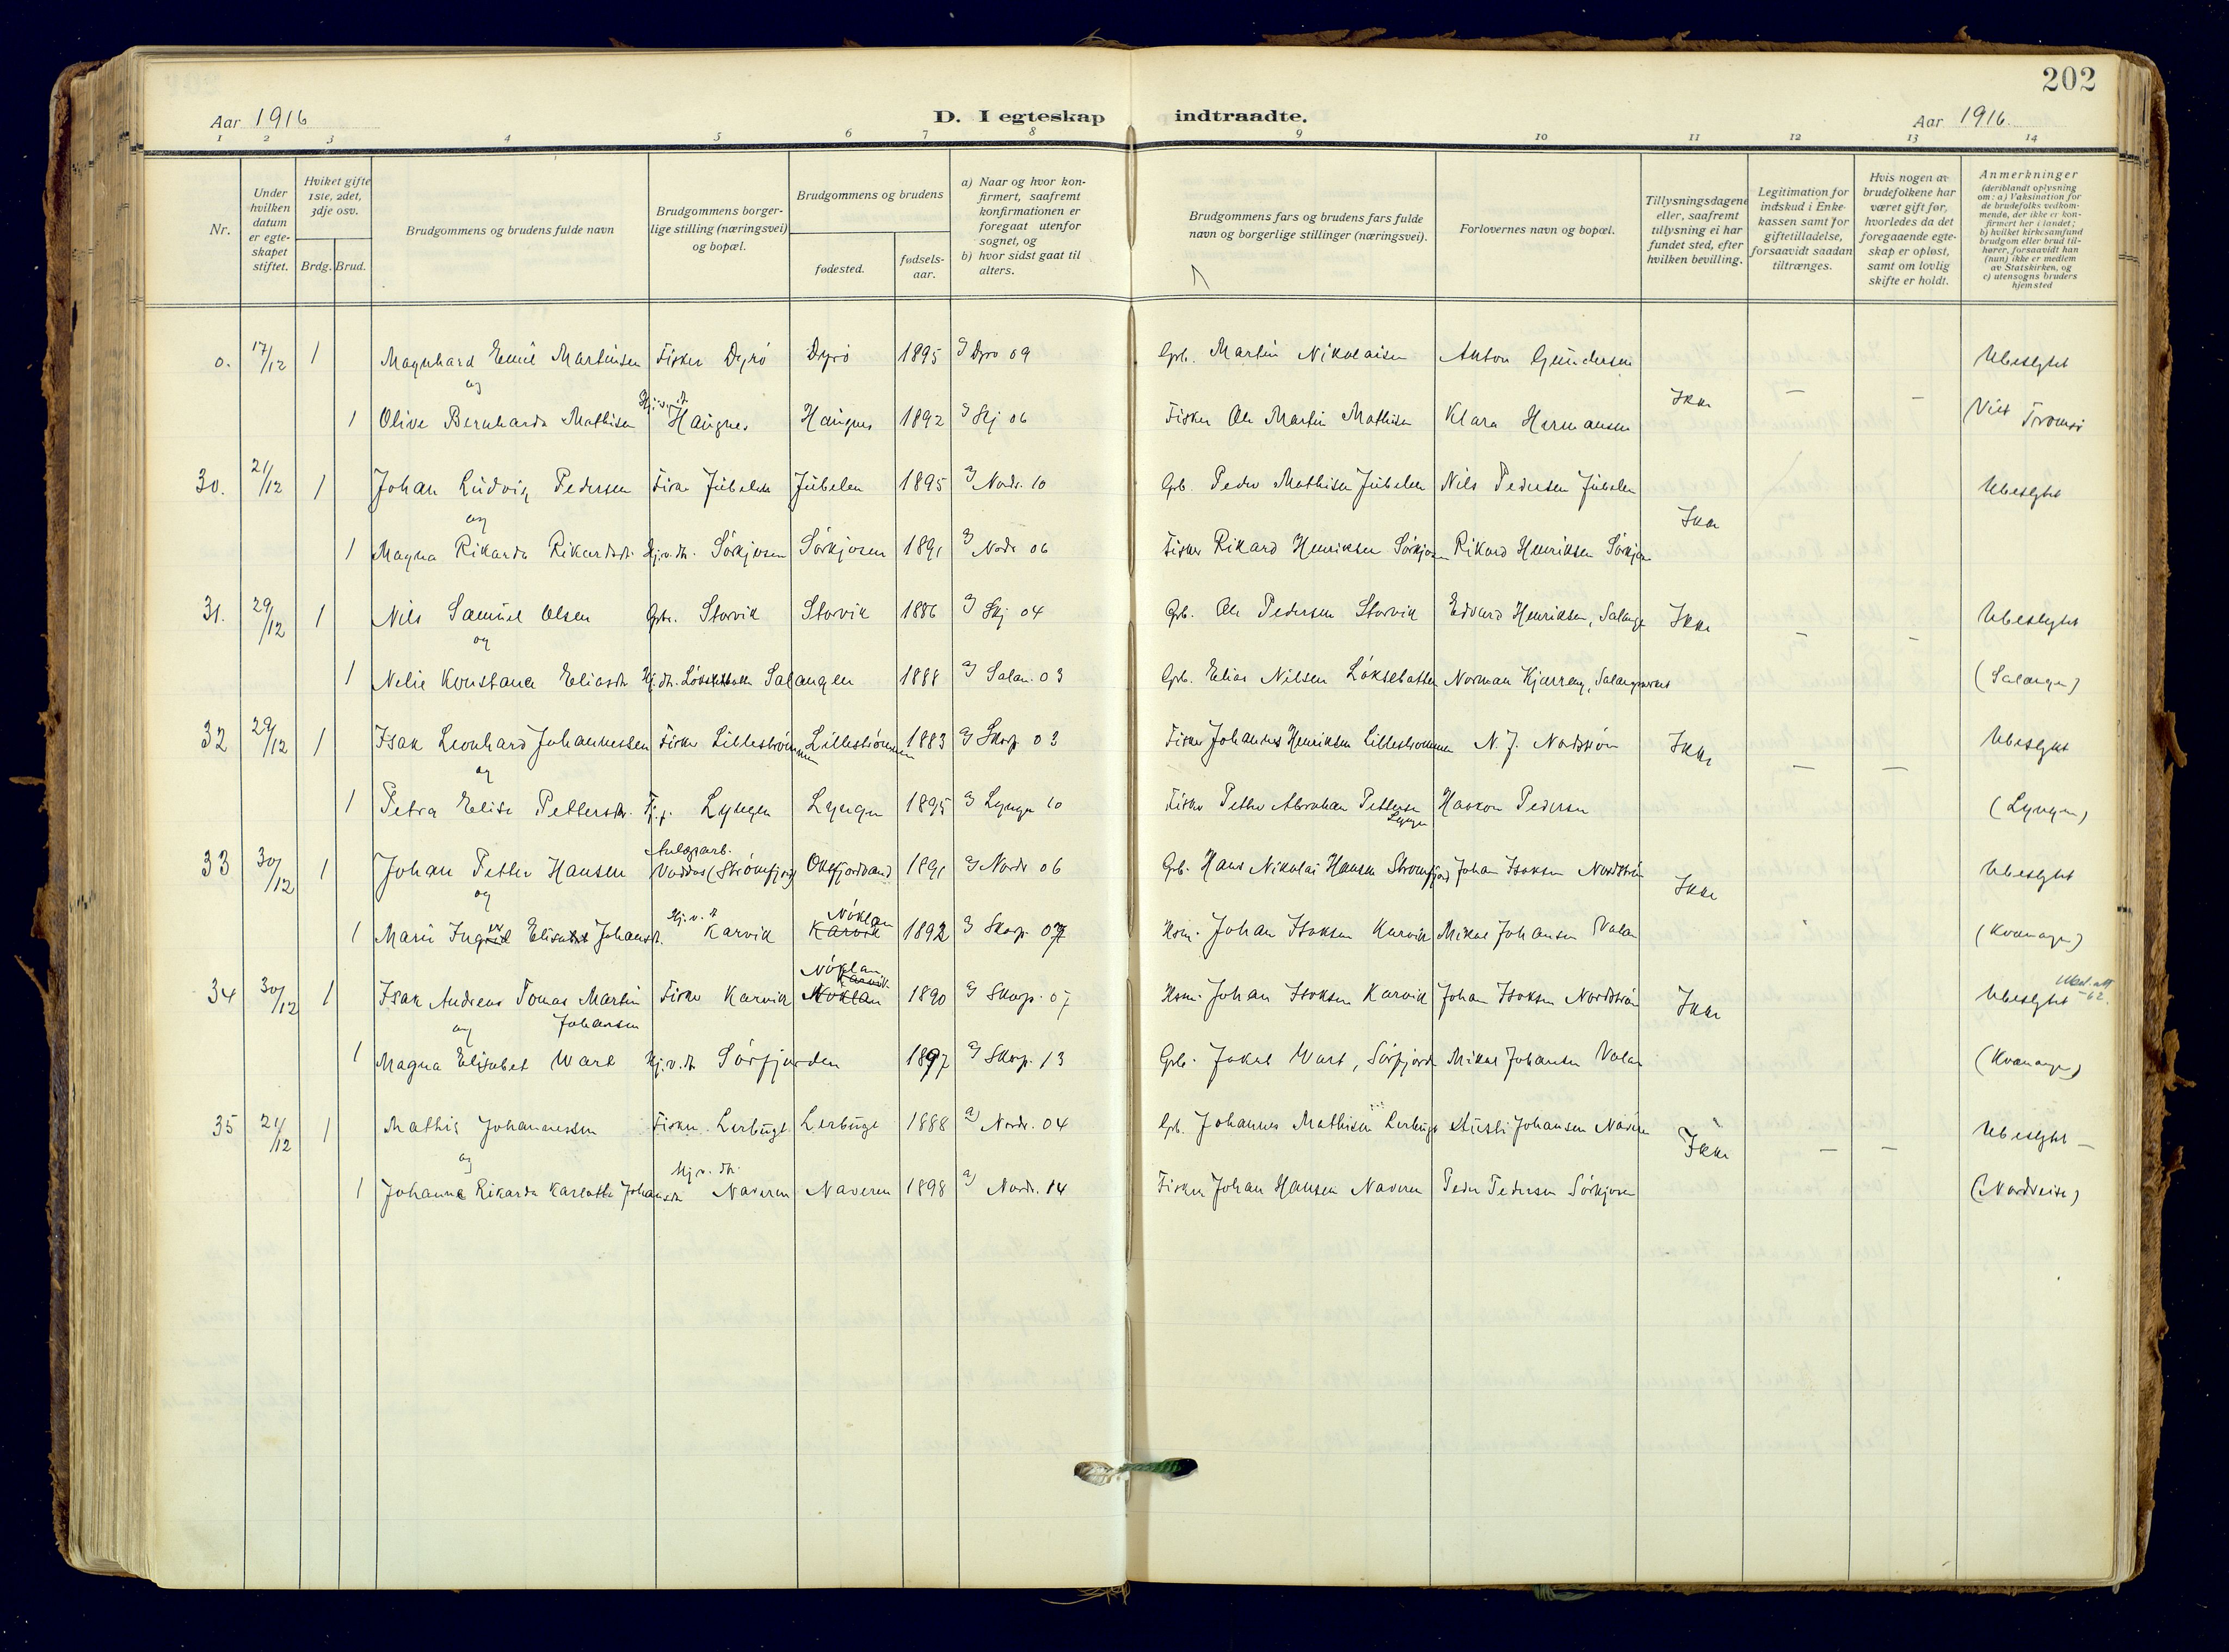 202
Aar 1916
D. I egteskap indtraadte.
Aar 1916.
1 2 3 4 5 6 7 8 9 10 11 12 13 14
Nr.
Under hvilken datum er egte-skapet stiftet.
Hvilket gifte 1ste, 2det, 3dje osv.
Brdg. Brud.
Brudgommens og brudens fulde navn
Brudgommens borger-lige stilling (næringsvei) og bopæl.
Brudgommens og brudens
fødested.
fødsels-aar.
a) Naar og hvor kon-firmert, saafremt konfirmationen er foregaat utenfor sognet, og
b) hvor sidst gaat til alters.
Brudgommens fars og brudens fars fulde navn og borgerlige stillinger (næringsvei).
Forlovernes navn og bopæl.
Tillysningsdagene eller, saafremt tillysning ei har fundet sted, efter hvilken bevilling.
Legitimation for indskud i Enke-kassen samt for giftetilladelse, forsaavidt saadan tiltrænges.
Hvis nogen av brudefolkene har været gift før, hvorledes da det foregaaende egte-skap er opløst, samt om lovlig skifte er holdt.
Anmerkninger
(deriblandt oplysning om: a) Vaksination for de brudefolks vedkom-mende, der ikke er kon-firmert her i landet; b) hvilket kirkesamfund brudgom eller brud til-hører, forsaavidt han (hun) ikke er medlem av Statskirken, og c) utensogns bruders hjemsted
0. 17/12 1 Magnhard Emil Martinsen Fisker Dyrö Dyrö 1895 a) Dyrö 09 Grb. Martin Nikolaisen Anton Gundersen Ubeslgtet
og
Ikke — —
1 Olive Bernharda Mathisen Hj.v. dt. Haugnes Haugnes 1892 a) Skj 06 Fisker Ole Martin Mathisen Klara Hermansen Viet Tromsö
30. 21/12 1 Johan Ludvig Pedersen Fisker Jubelen Jubelen 1895 a) Nordr. 10 Grb. Peder Mathisen Jubelen Nils Pedersen Jubelen Ubeslgtet
og
Ikke
1 Magna Rikarda Rikardsdt. Hj.v.dt. Sörkjosen Sörkjosen 1891 a) Nordr 06 Fisker Rikard Henriksen Sörkjosen Rikard Henriksen Sörkjosen
31. 29/12 1 Nils Samuel Olsen Grbr. Storvik Storvik 1886 a) Skj 04 Grb. Ole Pedersen Storvik Edvard Henriksen, Salange Ikke — — Ubeslgtet
og
1 Nelie Konstanse Eliasdt Hj. dt. Salangen 1888 a) Salan. 03 Grb. Elias Nilsen Löksebotten Norman Kjærreng, Salangsverket (Salangen)
32 29/12 1 Isak Leonhard Johannessen Fisker Lillestrømmen Lillestrømmen 1883 a) Skap. 03 Fisker Johannes Henriksen Lillestrommen N. J. Nordström Ikke — — Ubeslgtet
og
1 Petra Elise Pettersdt. Lyngen Lyngen 1895 a) Lyngen 10 Fisker Petter Abraham Pettersen Lyngen Haakon Pedersen (Lyngen)
33 30/12 1 Johan Petter Hansen Anlegsarb. Vaddas (Strömfjord) Oksfjordvand 1891 a) Nordr 06 Grb. Hans Nikolai Hansen Strömfjord Johan Isaksen Nordström Ikke Ubeslgtet
og
1 Marie Elisabet Johansdt. Hj. v. dt Karvik Nöklan Karvik 1892 a) Skap. 07 Hsm. Johan Isaksen Karvik Mikal Johansen Valan (Kvænangen)
34 30/12 1 Isak Andreas Tomas Martin Johansen Fisker Karvik Nöklan Karvik Nöklan 1890 a) Skap. 07 Hsm. Johan Isaksen Karvik Johan Isaksen Nordström Ikke Ubeslgtet -62.
og
1 Magna Elisabet Wart Hj.v.dt. Sörfjorden 1897 a) Skap. 13 Grb. Jakal Wart, Sörfjorden Mikal Johansen Valan (Kvænangen)
35 21/12 1 Mathis Johannessen Fisker Lerbugt Lerbugt 1888 a) Nordr. 04 Grb. Johannes Mathisen Lerbugt Johansen Naveren Ikke — — Ubeslgtet —
og
1 Johanne Rikarda Karlotte Johansdt Hj. v. dt. Naveren Naveren 1898 a) Nordr. 14 Fisker Johan Hansen Naveren Peder Pedersen Sörkjosen (Nordreise)